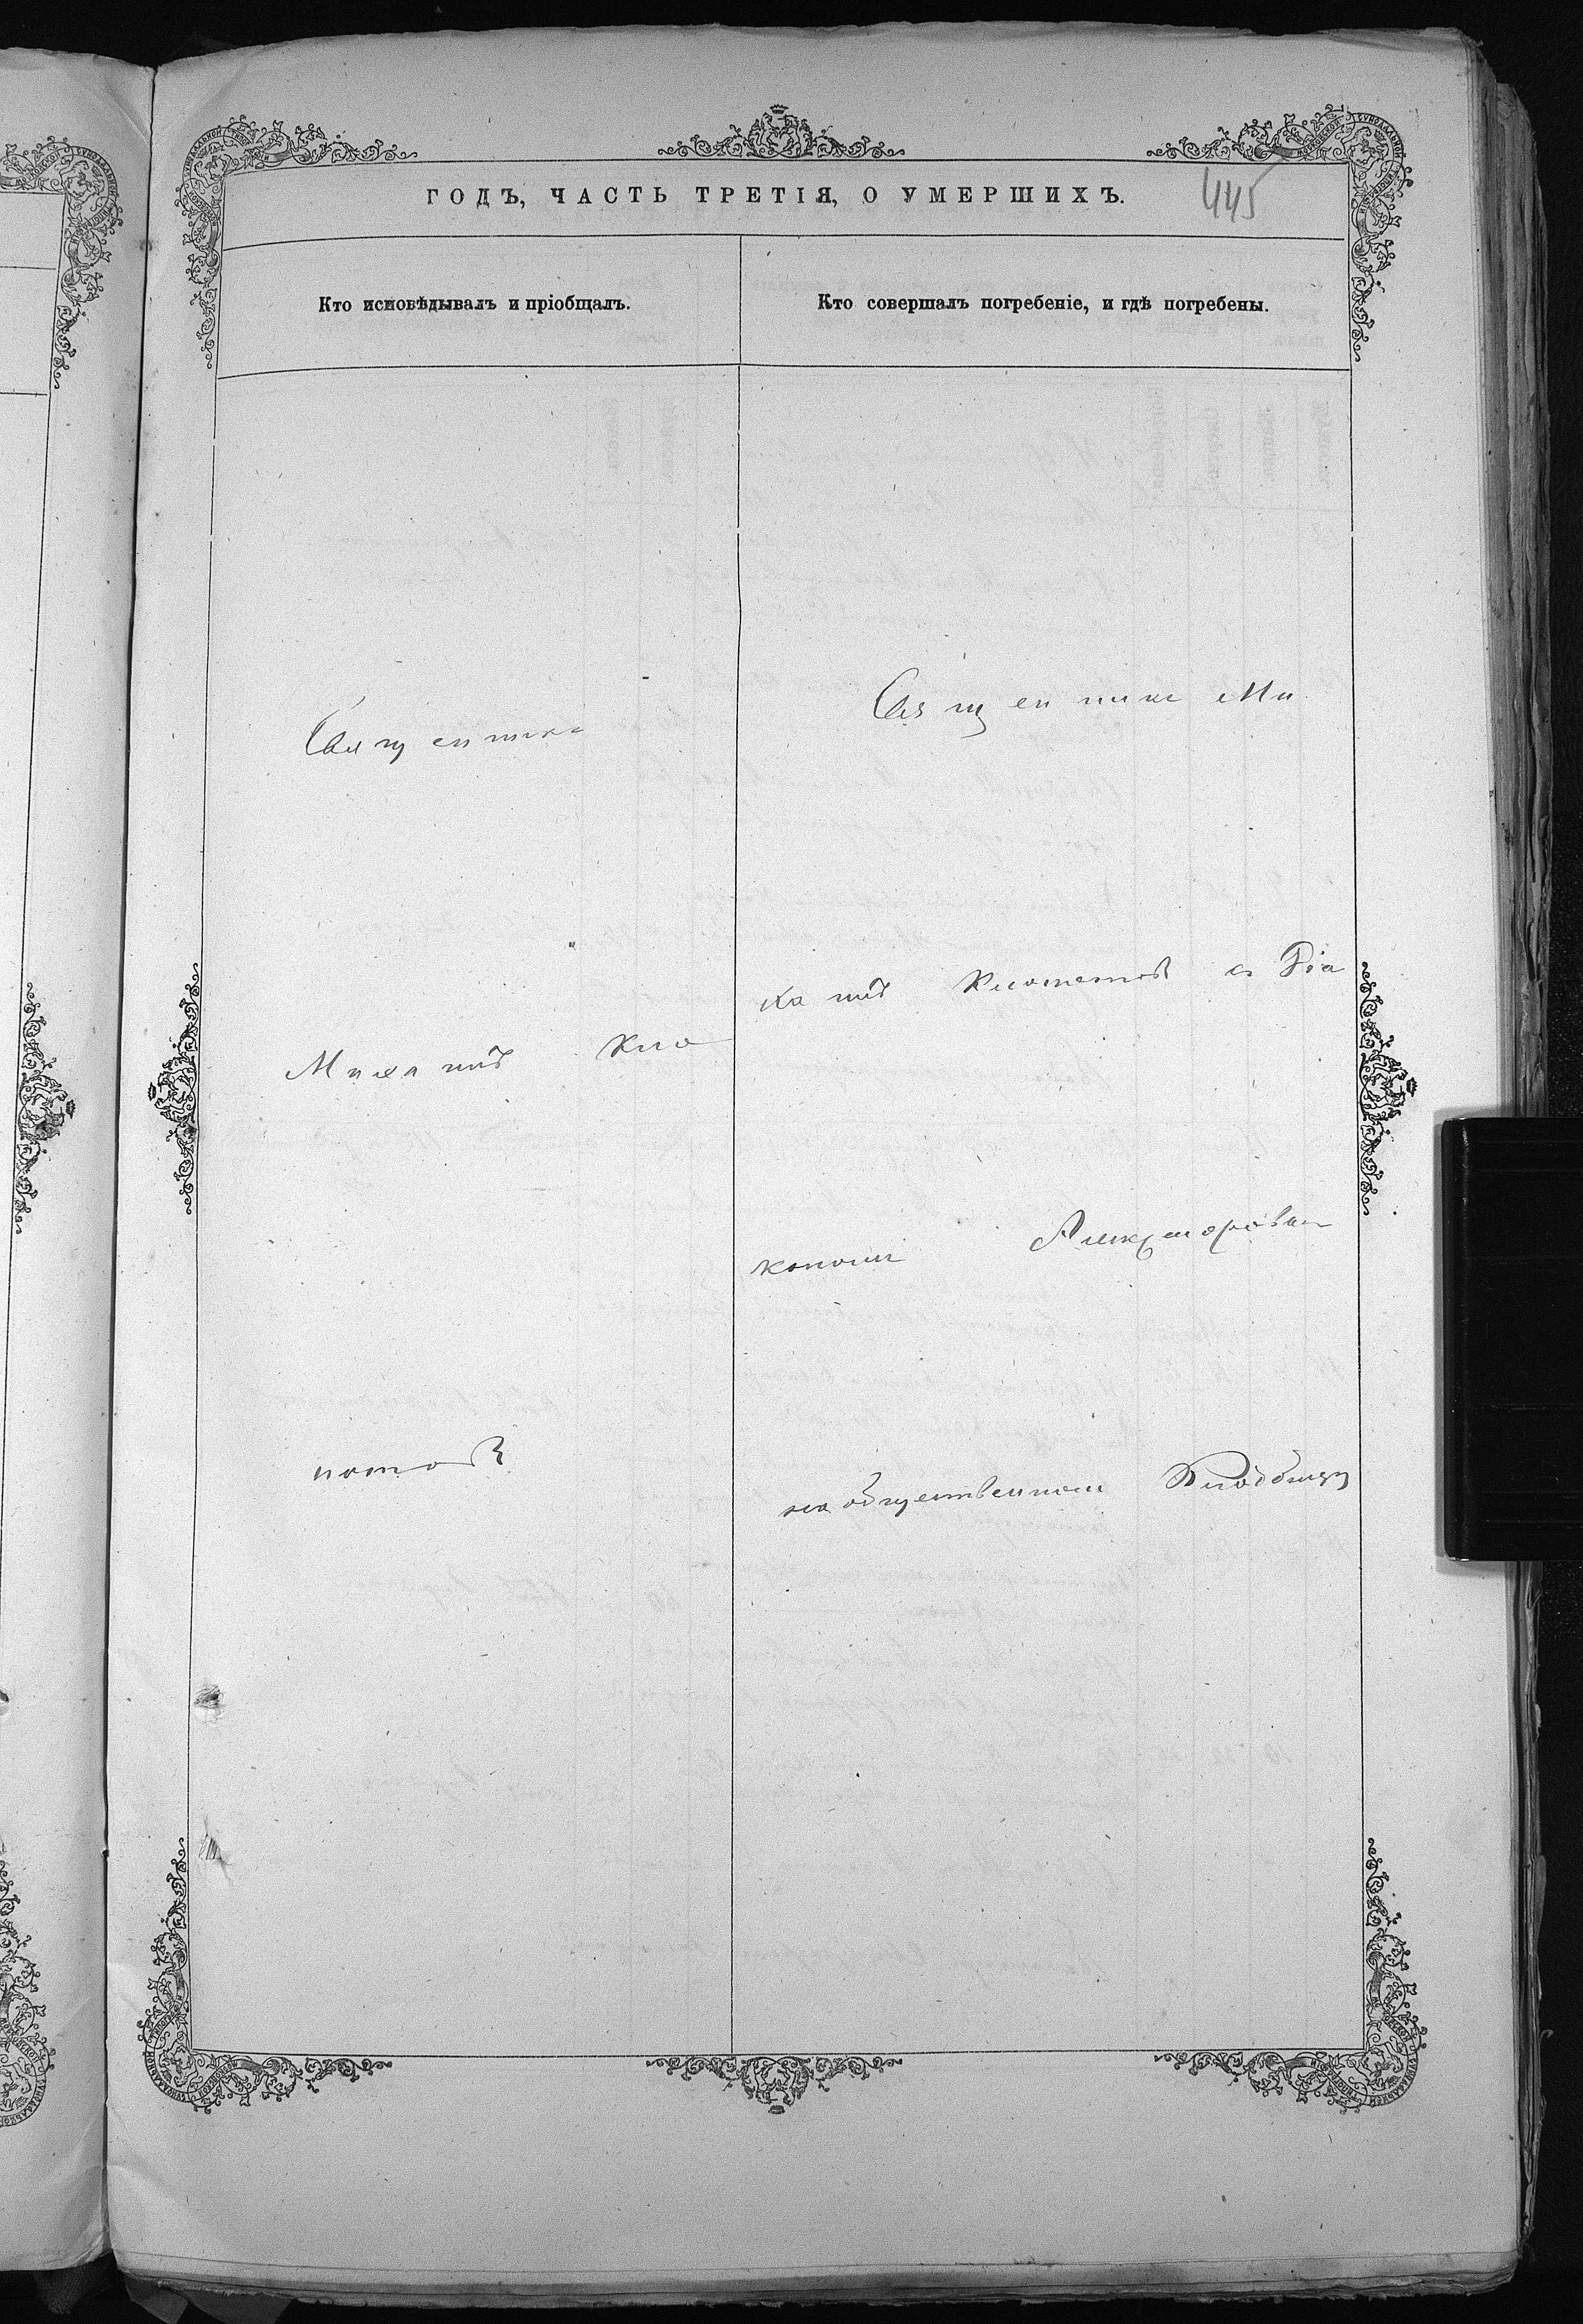 ГОДЪ, ЧАСТЬ ТРЕТІЯ, О УМЕРШИХЪ.
445
Кто исповѣдывалъ и пріобщалъ.
Священникъ
Михаилъ
Кто совершалъ погребеніе, и гдѣ погребены.
Священникъ Ми
хаилъ съ Діа
кономъ
на общественномъ Кладбищѣ